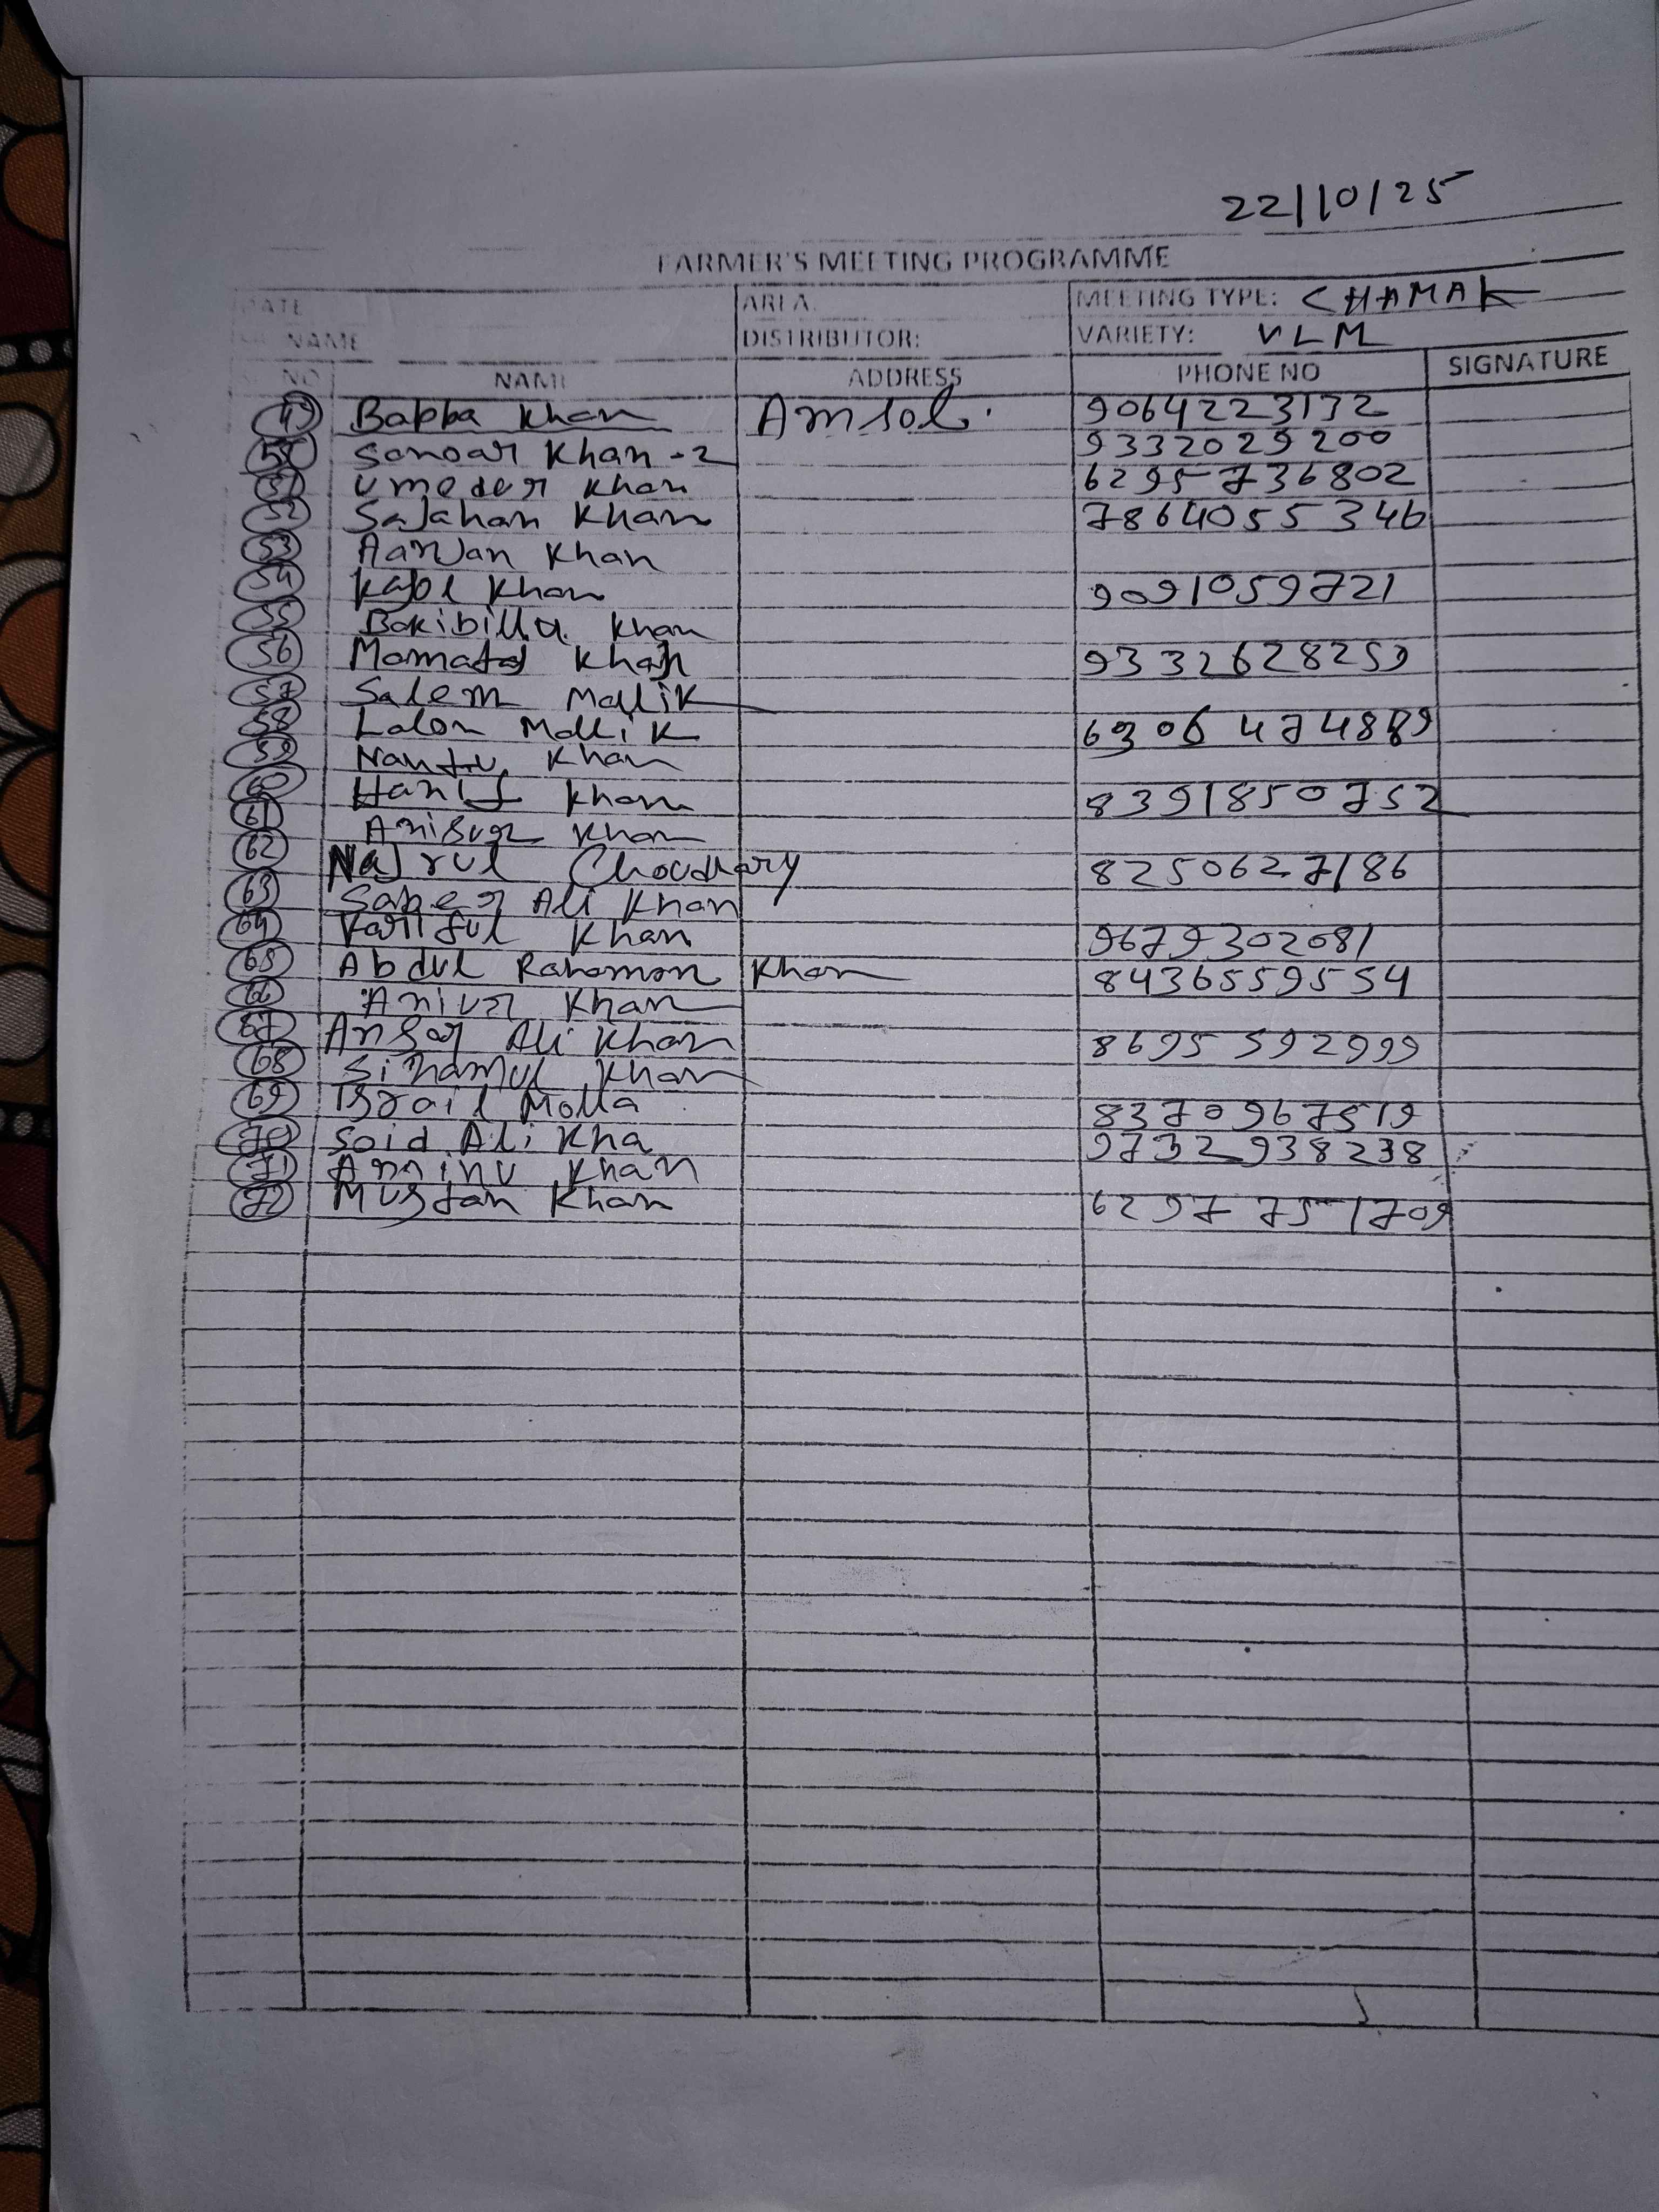 22/10/25
FARMER'S MEETING PROGRAMME
DATE AREA: MEETING TYPE: CHAMAK
NAME DISTRIBUTOR: VARIETY: VLM
NO NAME ADDRESS PHONE NO SIGNATURE
49 Babba Khan Amsol. 9064223132
50 Sanoar Khan-2 9332029200
51 Umedur Khan 6295736802
52 Sajahan Khan 7864055346
53 Khan
54 Kajol Khan 9091059721
55 Bakibilla Khan
56 Khan 9332628259
57 Salem Mallik
58 Lalon Mallik
59 Nantu Khan
60 Hanif Khan 8391850752
61 Anisur Khan
62 Najrul Choudhary 8250627186
63 Saber Ali Khan
64 Khan 9679302081
65 Abdul Rahaman Khan 8436559554
66 Khan
67 Ansar Ali Khan 8695592999
68 Khan
69 Israil Molla 8370967519
70 Said Ali Kha 9732938238
71 Khan
72 Mustan Khan 6297751709